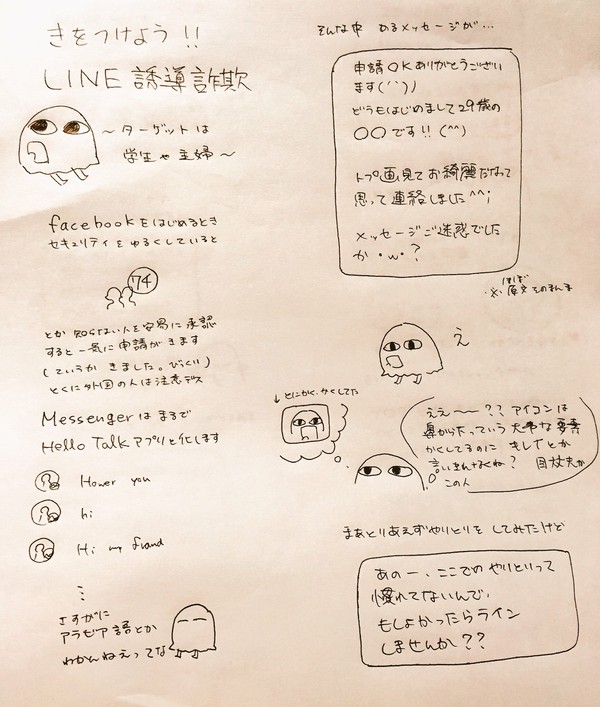 きをつけよう!!
LINE誘導詐欺
〜ターゲットは
学生や主婦〜
facebookをはじめるとき
セキュリティをゆるくしていると
74
とか知らない人を安易に承認
すると一気に申請がきます
(ていうかきました。びっくり)
とくに外国の人は注意デス
Messengerはまるで
Hello Talkアプリと化します
Hower you
hi
Hi my friand
さすがに
アラビア語とか
わかんねえってな
そんな中 あるメッセージが…
申請OKありがとうござい
ます(^^)ノ
どうもはじめまして29歳の
〇〇です!!(^^)
トプ画見てお綺麗だなって
思って連絡しました^^;
メッセージご迷惑でした
か・w・?
※ほぼ原文そのまんま
え
↓とにかくかくしてた
ええ〜〜??アイコンは
鼻から下っていう大事な要素
かくしてるのにキレイとか
言いきれなくね? 大丈夫か
この人
まあとりあえずやりとりをしてみたけど
あのー、ここでのやりとりって
慣れてないんで、
もしよかったらライン
しませんか??